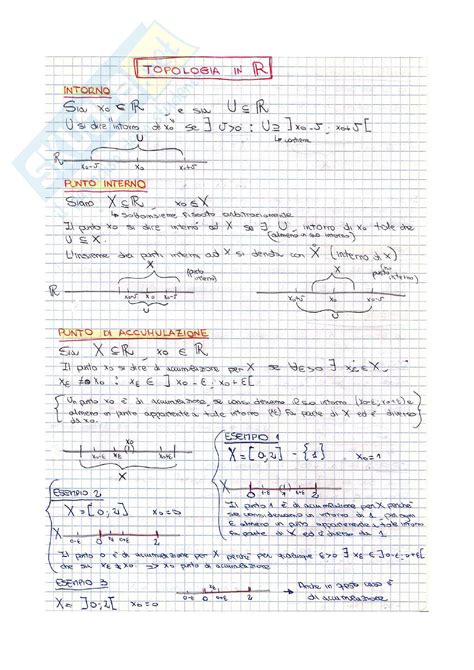 TOPOLOGIA IN ℝ
INTORNO
Sia x₀ ∈ ℝ, e sia U ⊆ ℝ
U si dice "intorno di x₀" se ∃ δ>0 : U ⊇ ]x₀-δ, x₀+δ[
↳ contiene
U
ℝ x₀-δ x₀ x₀+δ
PUNTO INTERNO
Siano X ⊆ ℝ, x₀ ∈ X
↳ Sottoinsieme fissato arbitrariamente
Il punto x₀ si dice interno ad X se ∃ U intorno di x₀ tale che
(almeno un intorno)
U ⊆ X.
L'insieme dei punti interni ad X si denota con X̊ (interno di X)
X (punto interno) X
ℝ x₀-δ x₀ x₀+δ x₀-δ x₀+δ
U U
PUNTO DI ACCUMULAZIONE
Sia X ⊆ ℝ, x₀ ∈ ℝ
Il punto x₀ si dice di accumulazione per X se ∀ε>0 ∃ xε ∈ X,
xε ≠ x₀ : xε ∈ ]x₀-ε, x₀+ε[
Un punto x₀ è di accumulazione, se considerando il suo intorno (x₀-ε, x₀+ε) e
almeno un punto appartenente a tale intorno fa parte di X ed è diverso
da x₀.
x₀
x₀-ε x₀+ε
X
ESEMPIO 1
X = [0,2] - {1} x₀=1
0 1-ε 1 1+ε 2
Il punto 1 è di accumulazione per X perché
se considerando un intorno di 1, per ogni
ε almeno un punto appartenente a tale intorno
fa parte di X ed è diverso da 1.
ESEMPIO 2
X = [0,2] x₀=0
X 0-ε 0 0+ε 2
Il punto 0 è di accumulazione per X perché per qualunque ε>0 ∃ xε ∈ ]0-ε, 0+ε[
che sia xε ≠ x₀ ⇒ x₀ punto di accumulazione
ESEMPIO 3
X = ]0,2[ x₀=0
0-ε 0 0+ε 2
Anche in questo caso è
di accumulazione